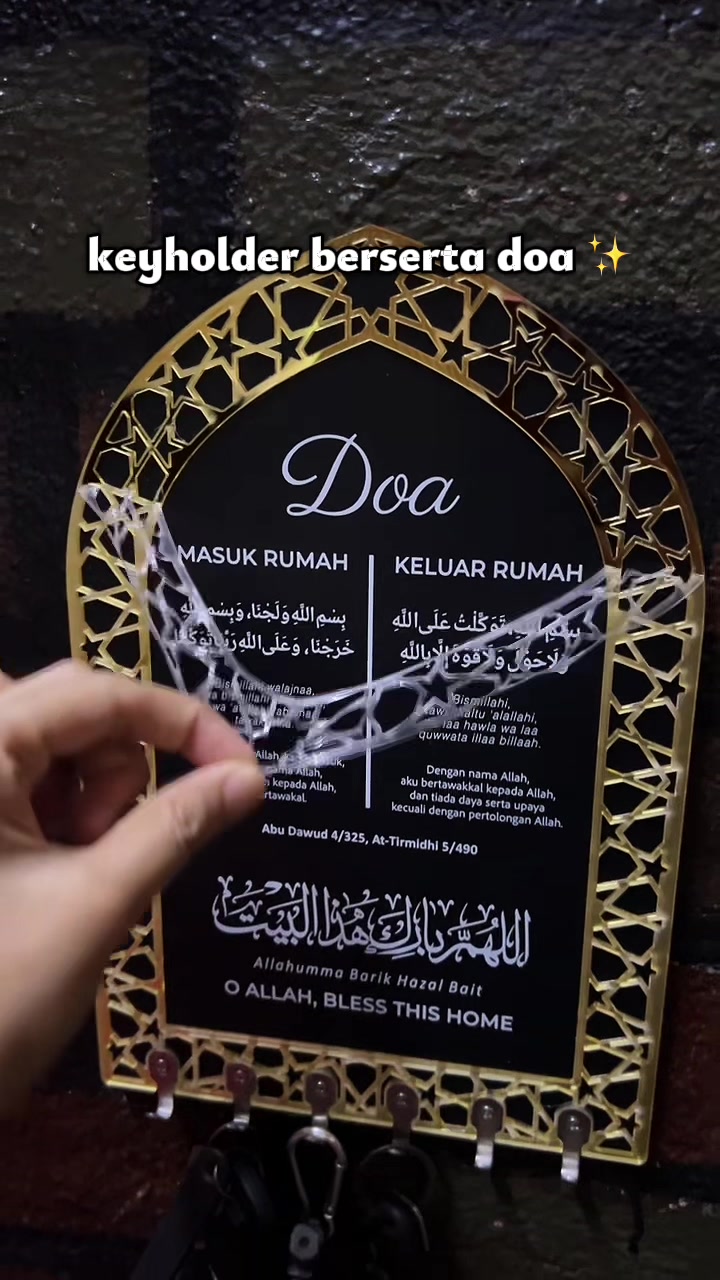 keyholder berserta doa ✨
Doa
MASUK RUMAH
بِسْمِ اللَّهِ وَلَجْنَا، وَبِسْمِ اللَّهِ
خَرَجْنَا، وَعَلَى اللَّهِ
Bismillahi walajnaa,
Allah,
kepada Allah,
KELUAR RUMAH
بِسْمِ اللَّهِ، تَوَكَّلْتُ عَلَى اللَّهِ
وَلَاحَوْلَ وَلَاقُوَّةَ إِلَّابِاللَّهِ
Bismillahi,
'alallahi,
laa hawla wa laa
quwwata illaa billaah.
Dengan nama Allah,
aku bertawakkal kepada Allah,
dan tiada daya serta upaya
kecuali dengan pertolongan Allah.
Abu Dawud 4/325, At-Tirmidhi 5/490
اللهم بارك هذا البيت
Allahumma Barik Hazal Bait
O ALLAH, BLESS THIS HOME